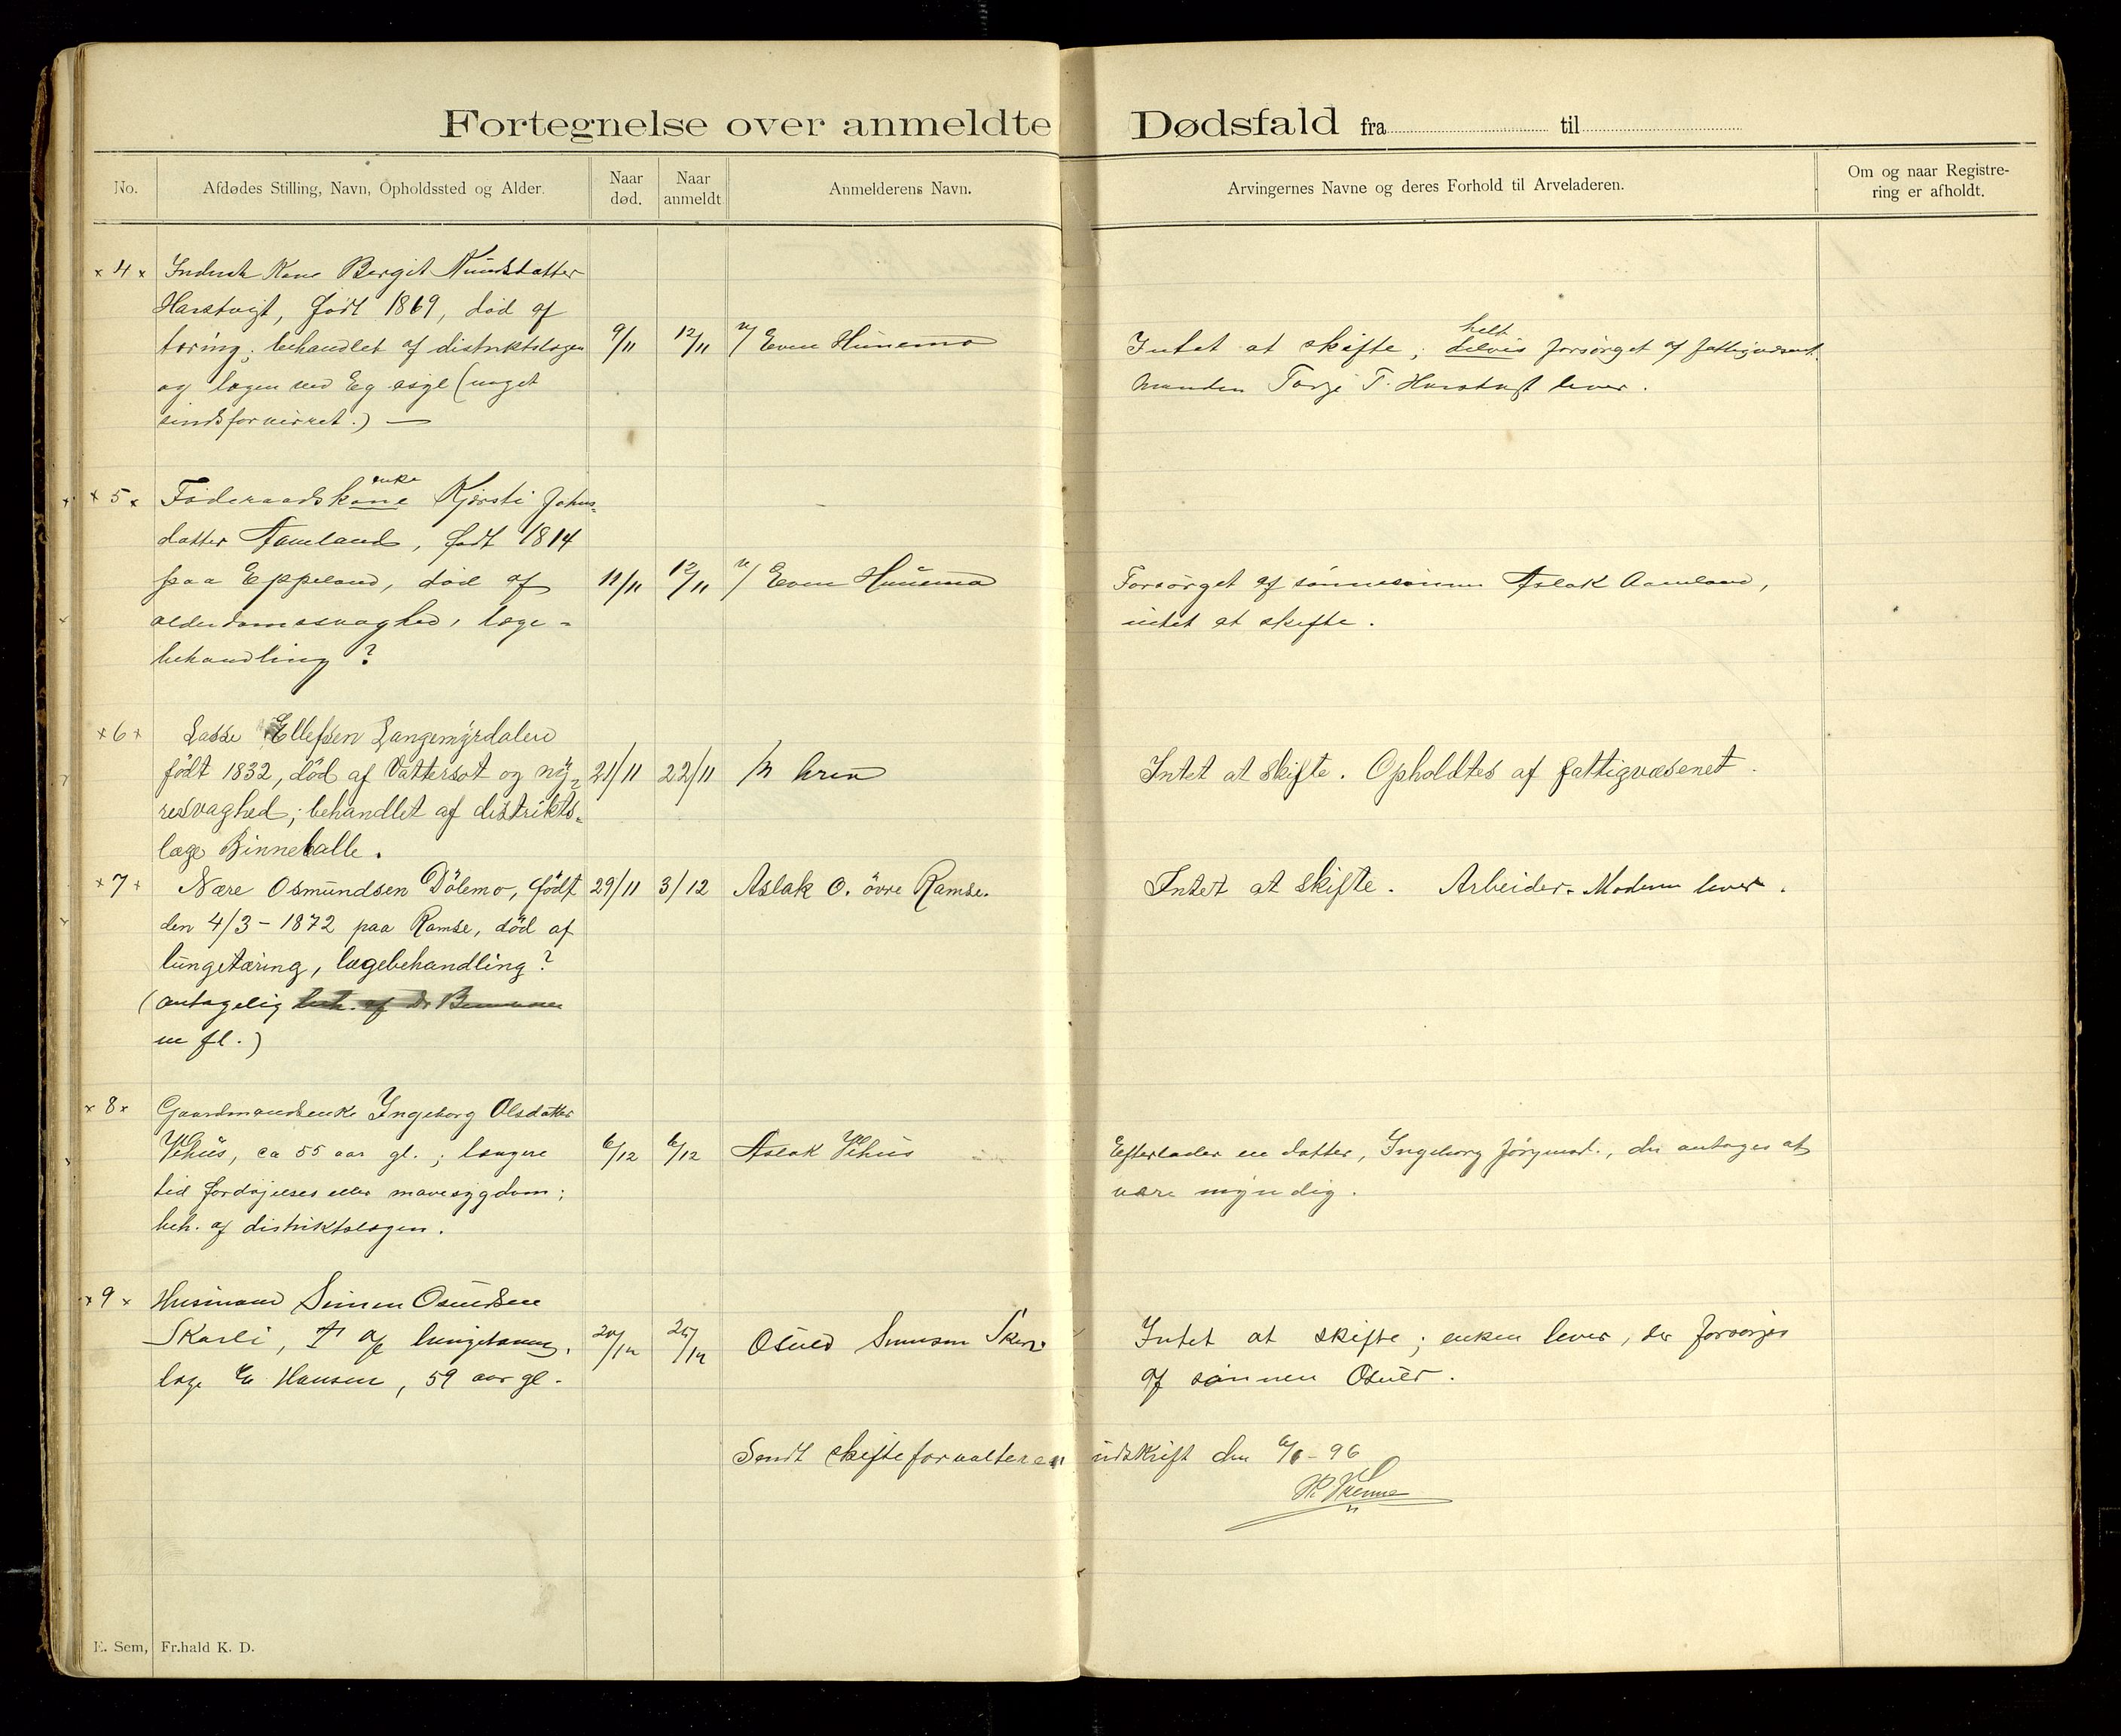 Fortegnelse over anmeldte Dødsfald fra til
No.
Afdødes Stilling, Navn, Opholdssted og Alder.
Naar død.
Naar anmeldt
Anmelderens Navn.
Arvingernes Navne og deres Forhold til Arveladeren.
Om og naar Registrering er afholdt.
× 4 × Kone Bergit
født 1869, død af
tæring; behandlet af distriktslægen 9/11 12/11 Even Hunemo
og lægen ved Eg asyl (noget
sindsforvirret.) —
helt
Intet at skifte; delvis forsørget af fattigvæsenet.
Manden T. lever.
enke
× 5 × Föderaadskone Kjersti Johns-
datter Aamland, født 1814
paa Eppeland, död af 11/11 12/11 Even Hunemo
alderdomssvaghed, læge-
behandling ?
Forsörget af sönnesönnen Aslak Aamland,
intet at skifte.
× 6 × Lasse Ellefsen Langemyrdalen
født 1832, död af Vattersot og ny- 21/11 22/11
resvaghed; behandlet af distrikts-
læge Binneballe.
Intet at skifte. Opholdtes af fattigvæsenet.
× 7 × Nære Osmundsen Dölemo, født 29/11 3/12 Aslak O. övre Ramse.
den 4/3 - 1872 paa Ramse, död af
lungetæring, lægebehandling?
(antagelig beh. af Dr
m fl.)
Intet at skifte. Arbeider. Moderen lever.
× 8 × Gaardmandsenke Ingeborg Olsdatter
Vehus, ca 55 aar gl.; længere 6/12 6/12 Aslak Vehus
tid fordöjelses eller mavesygdom;
beh. af distriktslægen.
Efterlader en datter, Ingeborg, der antages at
være myndig.
× 9 × Husmand Simen Osuldsen
Skarli, † af lungetæring,
læge Hansen, 59 aar gl.
Osuld Simensen
Intet at skifte; enken lever, der forsørges
af sönnen Osuld.
Sendt skifteforvalteren udskrift den 6/1 - 96
E. Sem, Fr.hald K. D.